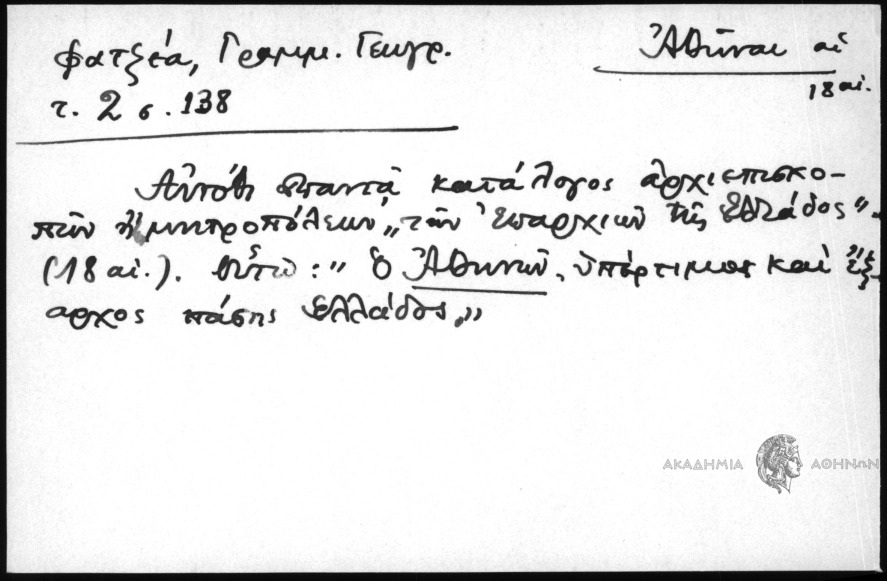 Φατζέα, Γραμμ. Γεωγρ.
τ. 2 σ. 138
Ἀθῆναι αἱ
18 αἰ.
Αὐτόθι ἀπαντᾷ κατάλογος ἀρχιεπισκο-
πῶν ἢ μητροπόλεων „τῶν Ἐπαρχιῶν τῆς Ἑλλάδος"
(18 αἰ.). Οὕτω: „ Ὁ Ἀθηνῶν, ὑπέρτιμος καὶ ἔξ-
αρχος πάσης Ἑλλάδος„
ΑΚΑΔΗΜΙΑ ΑΘΗΝΩΝ